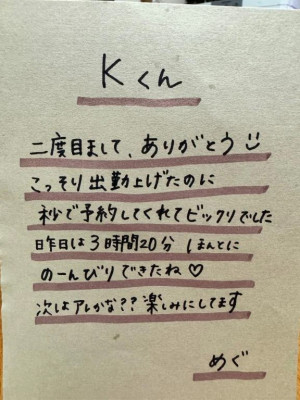 Kくん
二度目まして、ありがとう
こっそり出勤上げたのに
秒で予約してくれてビックリでした
昨日は3時間20分 ほんとに
のーんびりできたね♡
次はアレかな?? 楽しみにしてます
めぐ